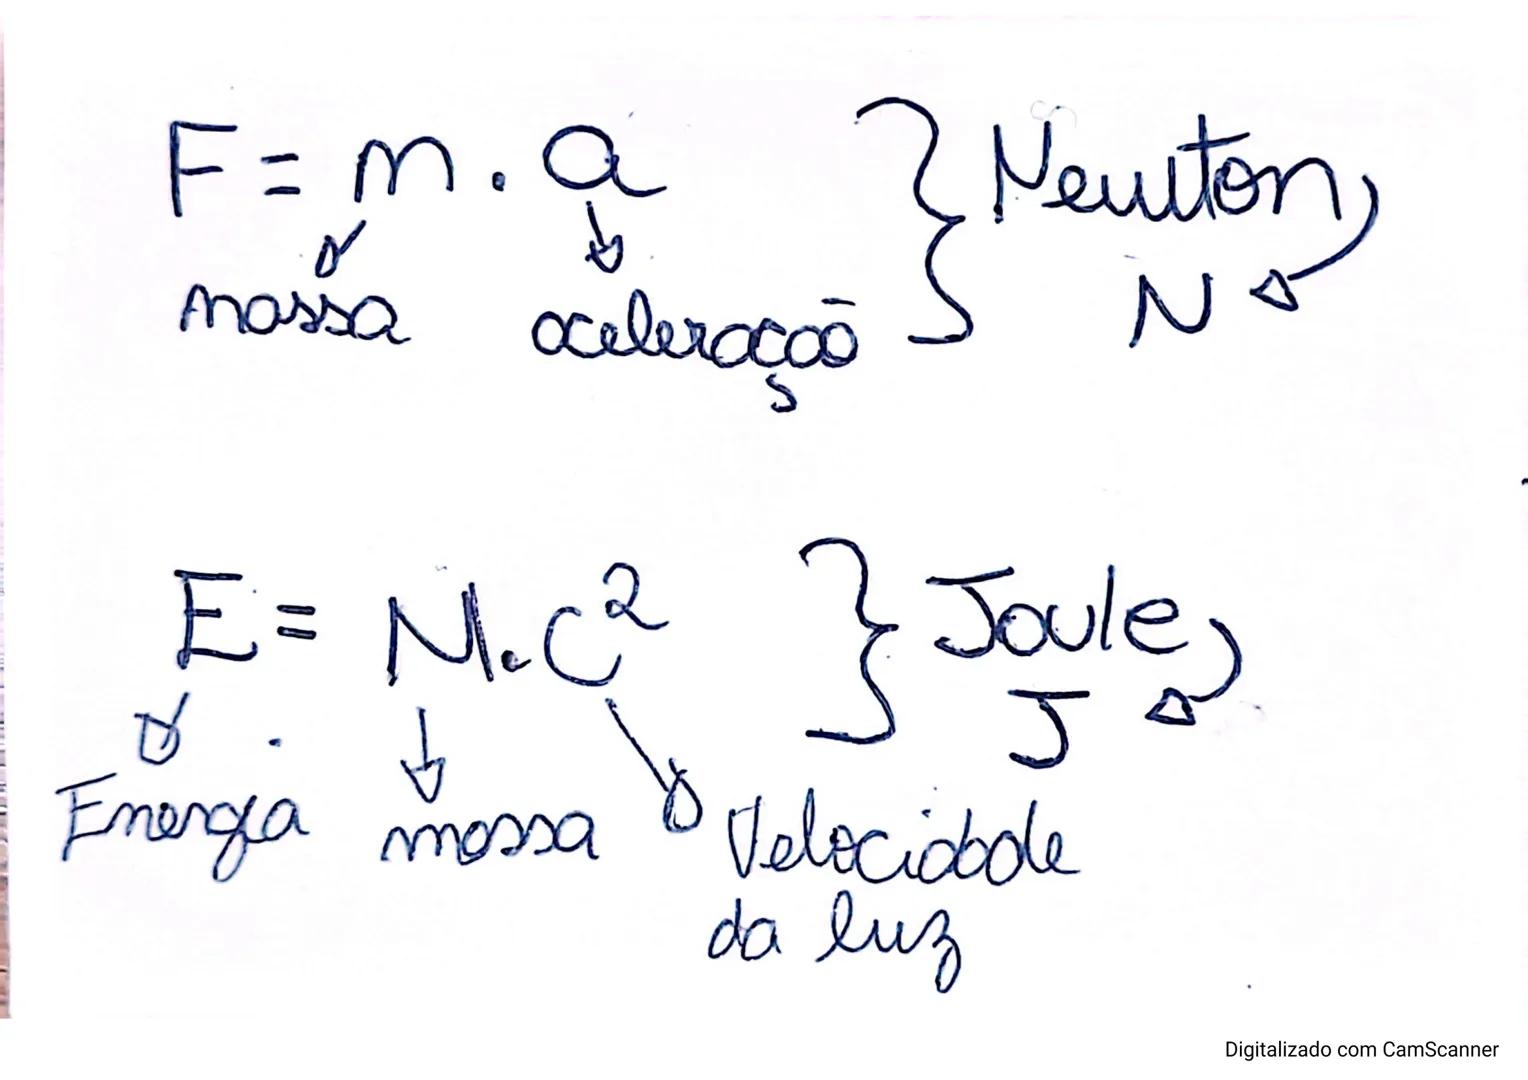 F = m . a } Newton
massa aceleração N
E = M . C² } Joule
J
Energia massa Velocidade
da luz
Digitalizado com CamScanner